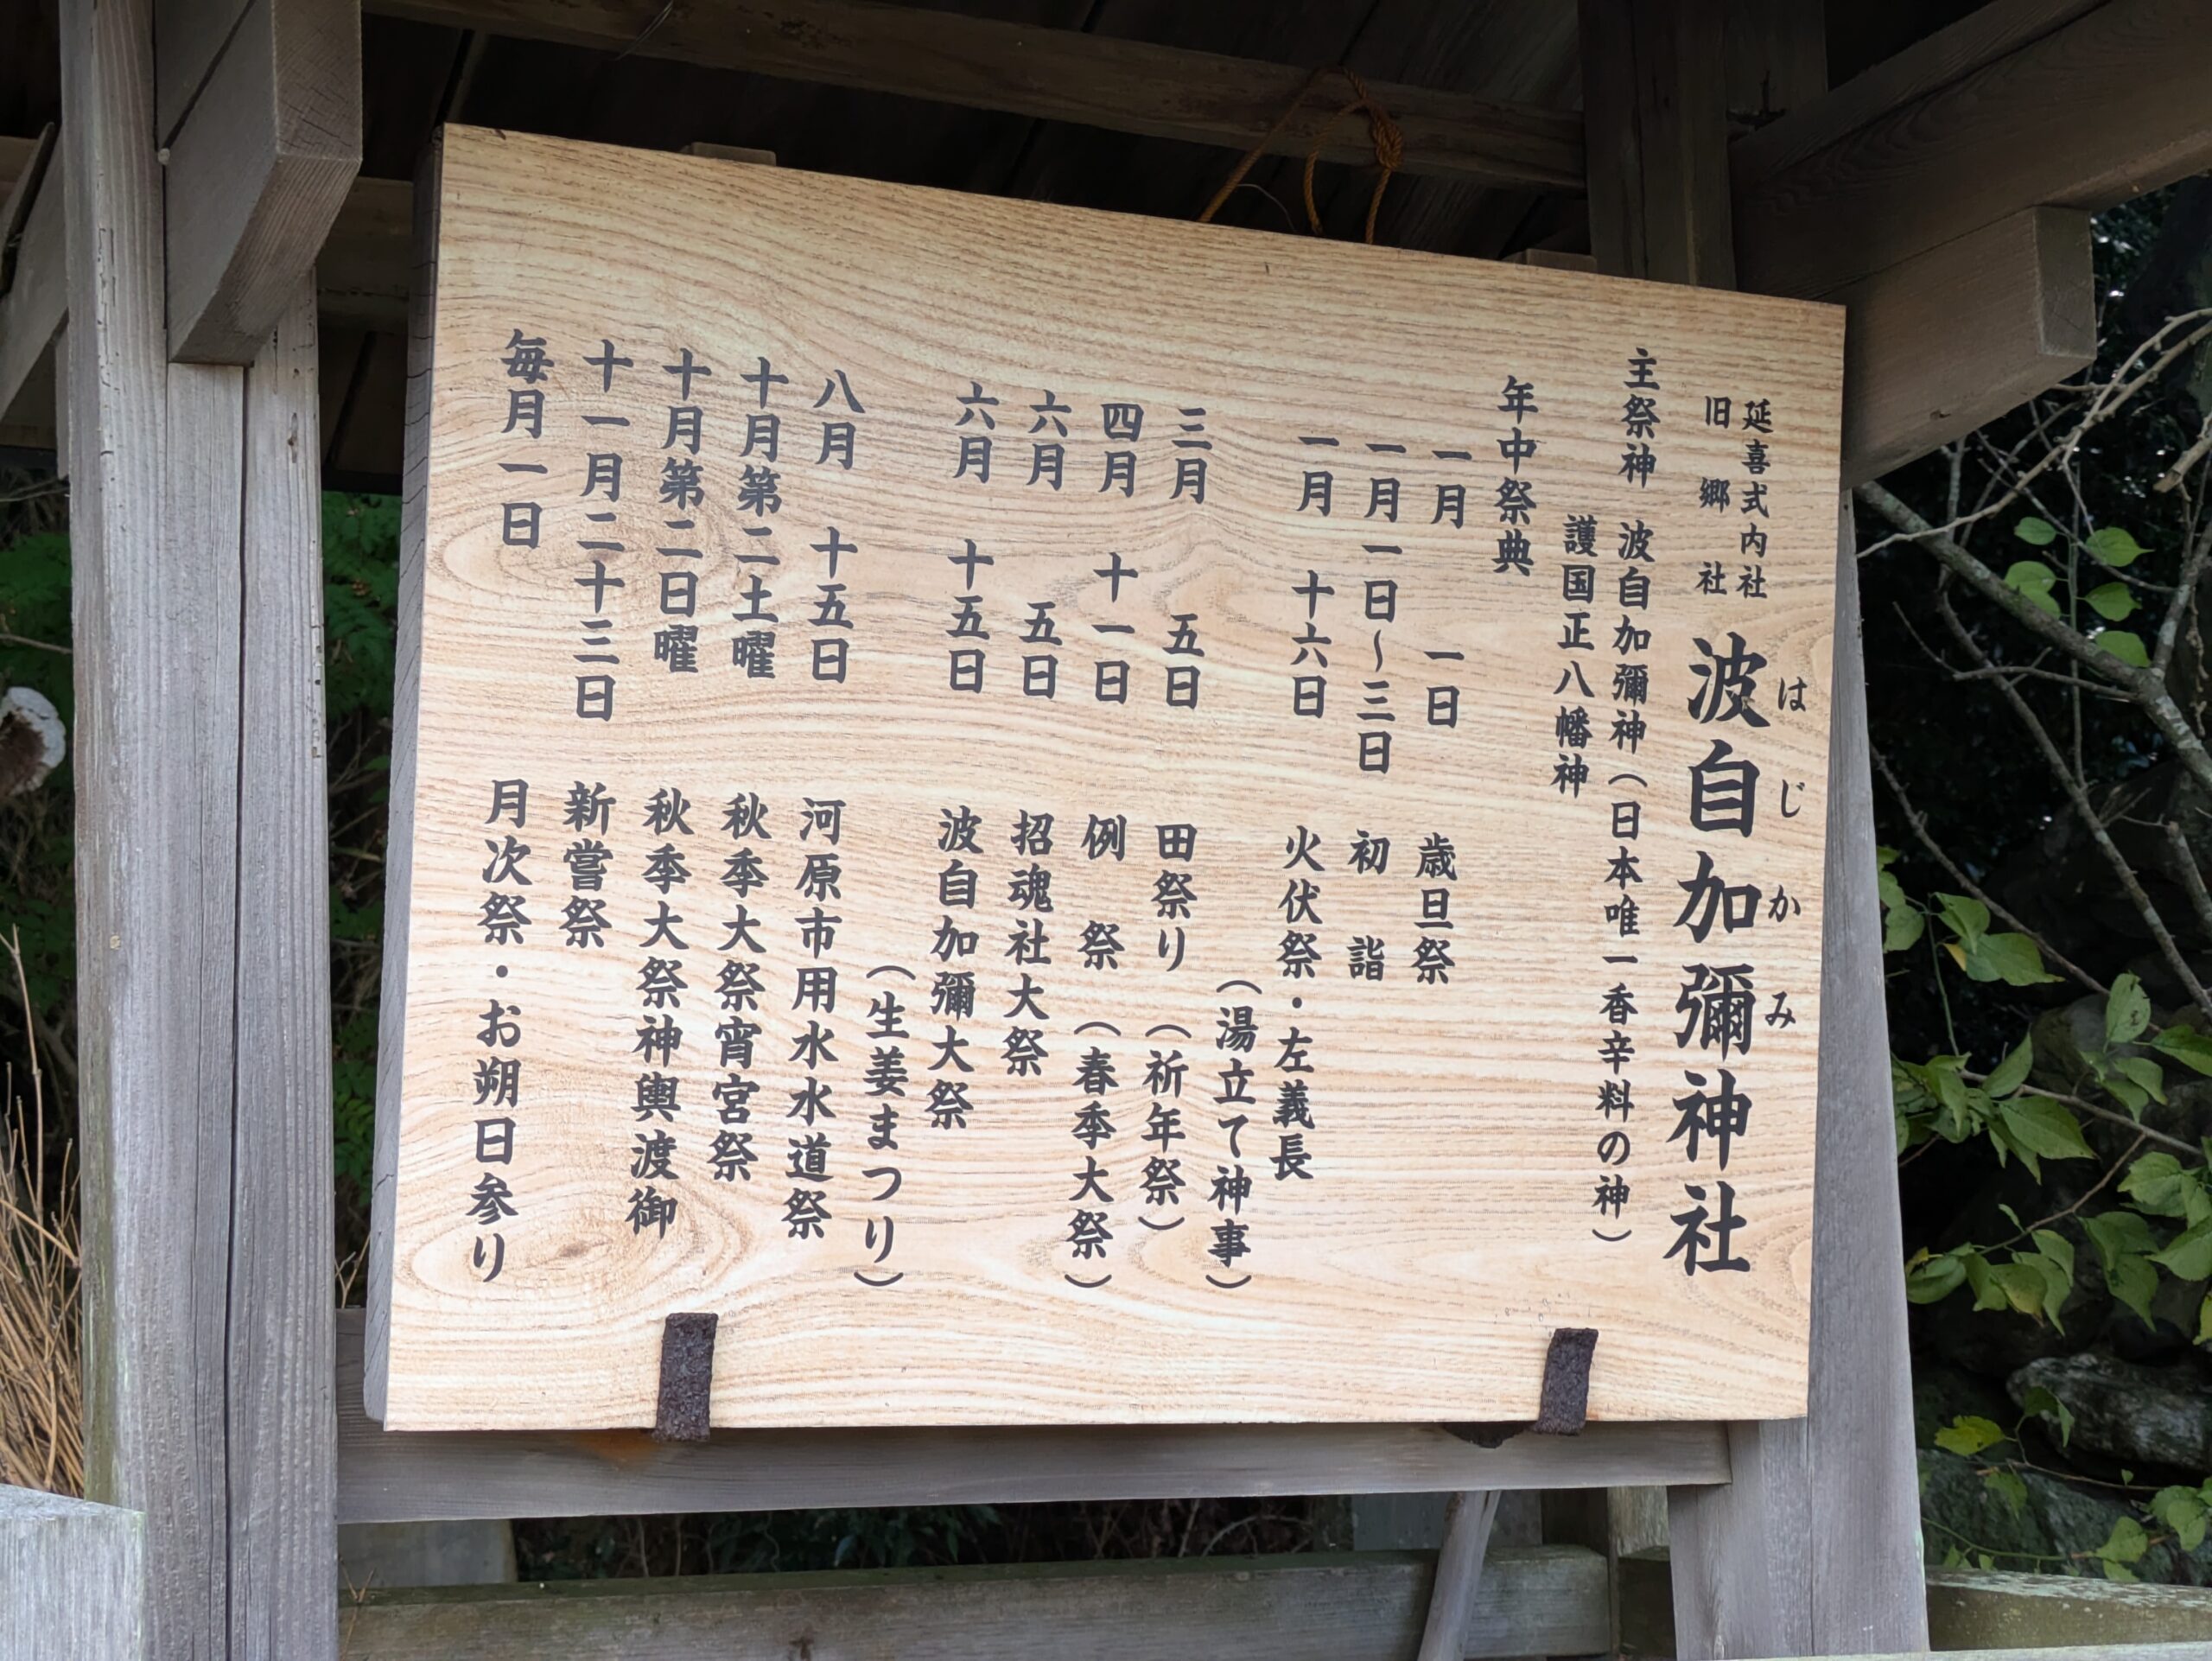 延喜式内社
旧郷社
波自加彌神社
はじかみ
主祭神 波自加彌神（日本唯一香辛料の神）
護国正八幡神
年中祭典
一月 一日 歳旦祭
一月一日〜三日 初詣
一月 十六日 火伏祭・左義長
（湯立て神事）
三月 五日 田祭り（祈年祭）
四月 十一日 例祭（春季大祭）
六月 五日 招魂社大祭
六月 十五日 波自加彌大祭
（生姜まつり）
八月 十五日 河原市用水水道祭
十月第二土曜 秋季大祭宵宮祭
十月第二日曜 秋季大祭神輿渡御
十一月二十三日 新嘗祭
毎月一日 月次祭・お朔日参り